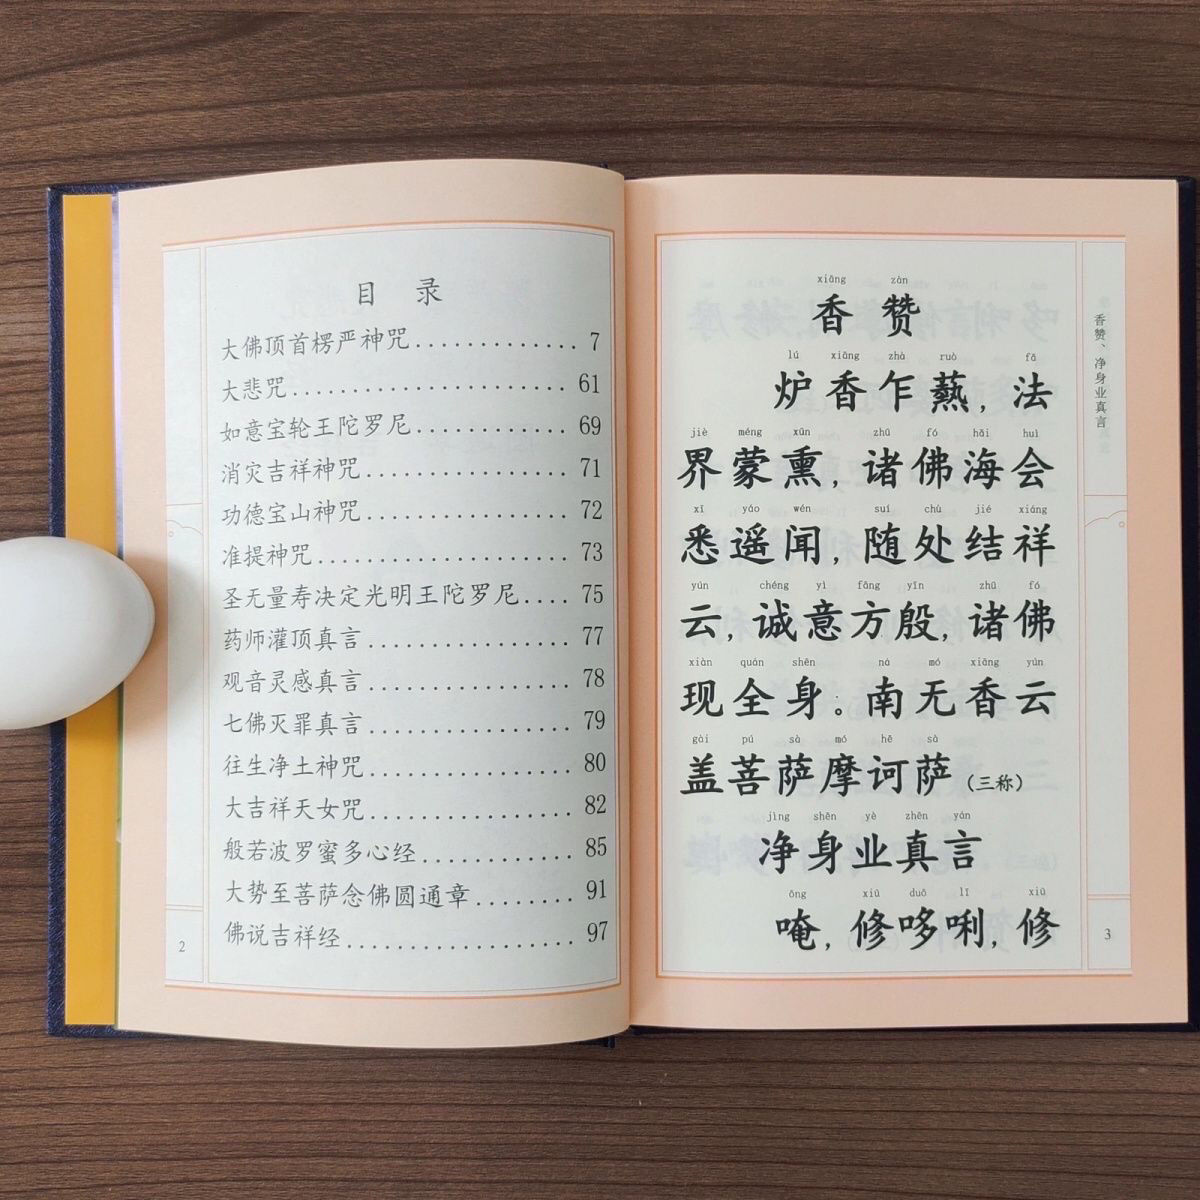 目 录
大佛顶首楞严神咒.............. 7
大悲咒........................ 61
如意宝轮王陀罗尼.............. 69
消灾吉祥神咒.................. 71
功德宝山神咒.................. 72
准提神咒...................... 73
圣无量寿决定光明王陀罗尼.... 75
药师灌顶真言.................. 77
观音灵感真言.................. 78
七佛灭罪真言.................. 79
往生净土神咒.................. 80
大吉祥天女咒.................. 82
般若波罗蜜多心经.............. 85
大势至菩萨念佛圆通章......... 91
佛说吉祥经.................... 97
2
xiāng zàn
香赞
lú xiāng zhà ruò fǎ
炉香乍爇,法
jiè méng xūn zhū fó hǎi huì
界蒙熏,诸佛海会
xī yáo wén suí chù jié xiáng
悉遥闻,随处结祥
yún chéng yì fāng yīn zhū fó
云,诚意方殷,诸佛
xiàn quán shēn ná mó xiāng yún
现全身。南无香云
gài pú sà mó hē sà
盖菩萨摩诃萨(三称)
jìng shēn yè zhēn yán
净身业真言
ōng xiū duō lī xiū
唵,修哆唎,修
香赞、净身业真言
3